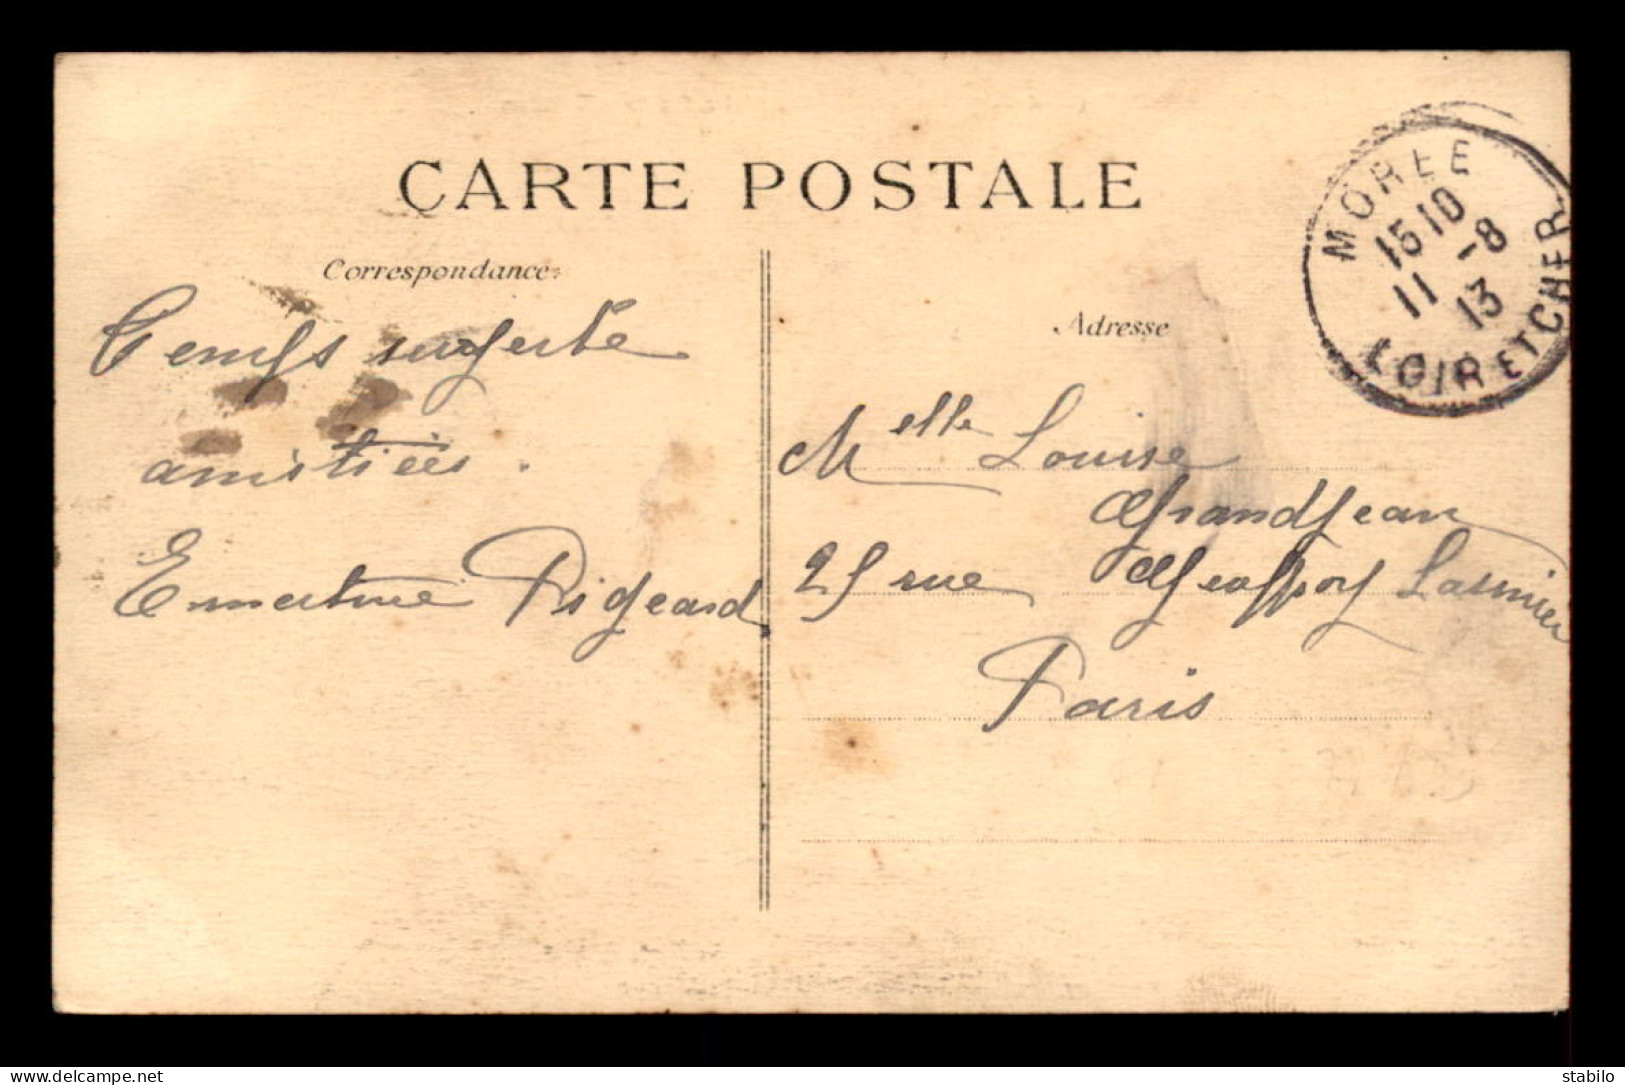 CARTE POSTALE
Correspondance
Temps superbe
amitiées.
Ernestine Pigeard
Adresse
Melle Louise
Grandjean
25 rue Geoffroy Lasnier
Paris
MOREE
15 10
11 -8
13
LOIR ET CHER
delcampe.net
stabilo